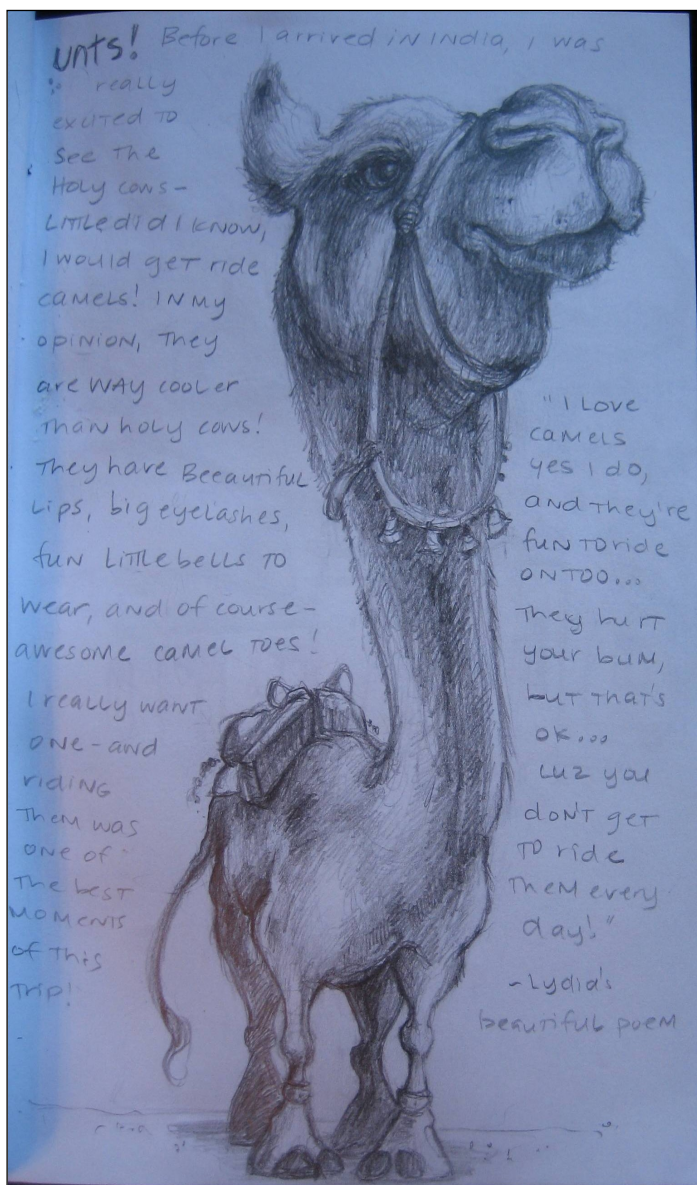 unts! Before I arrived in India, I was
really
excited to
see the
Holy cows-
Little did I know,
I would get ride
camels! In my
opinion, they
are WAY cooler
than holy cows!
They have Beeautiful
Lips, big eyelashes,
fun Little bells to
wear, and of course-
awesome camel toes!
I really want
one-and
riding
them was
one of
the best
moments
of this
trip!
"I Love
camels
yes I do,
and they're
fun to ride
on too...
They hurt
your bum,
but that's
ok...
cuz you
don't get
to ride
them every
day!"
~Lydia's
beautiful poem